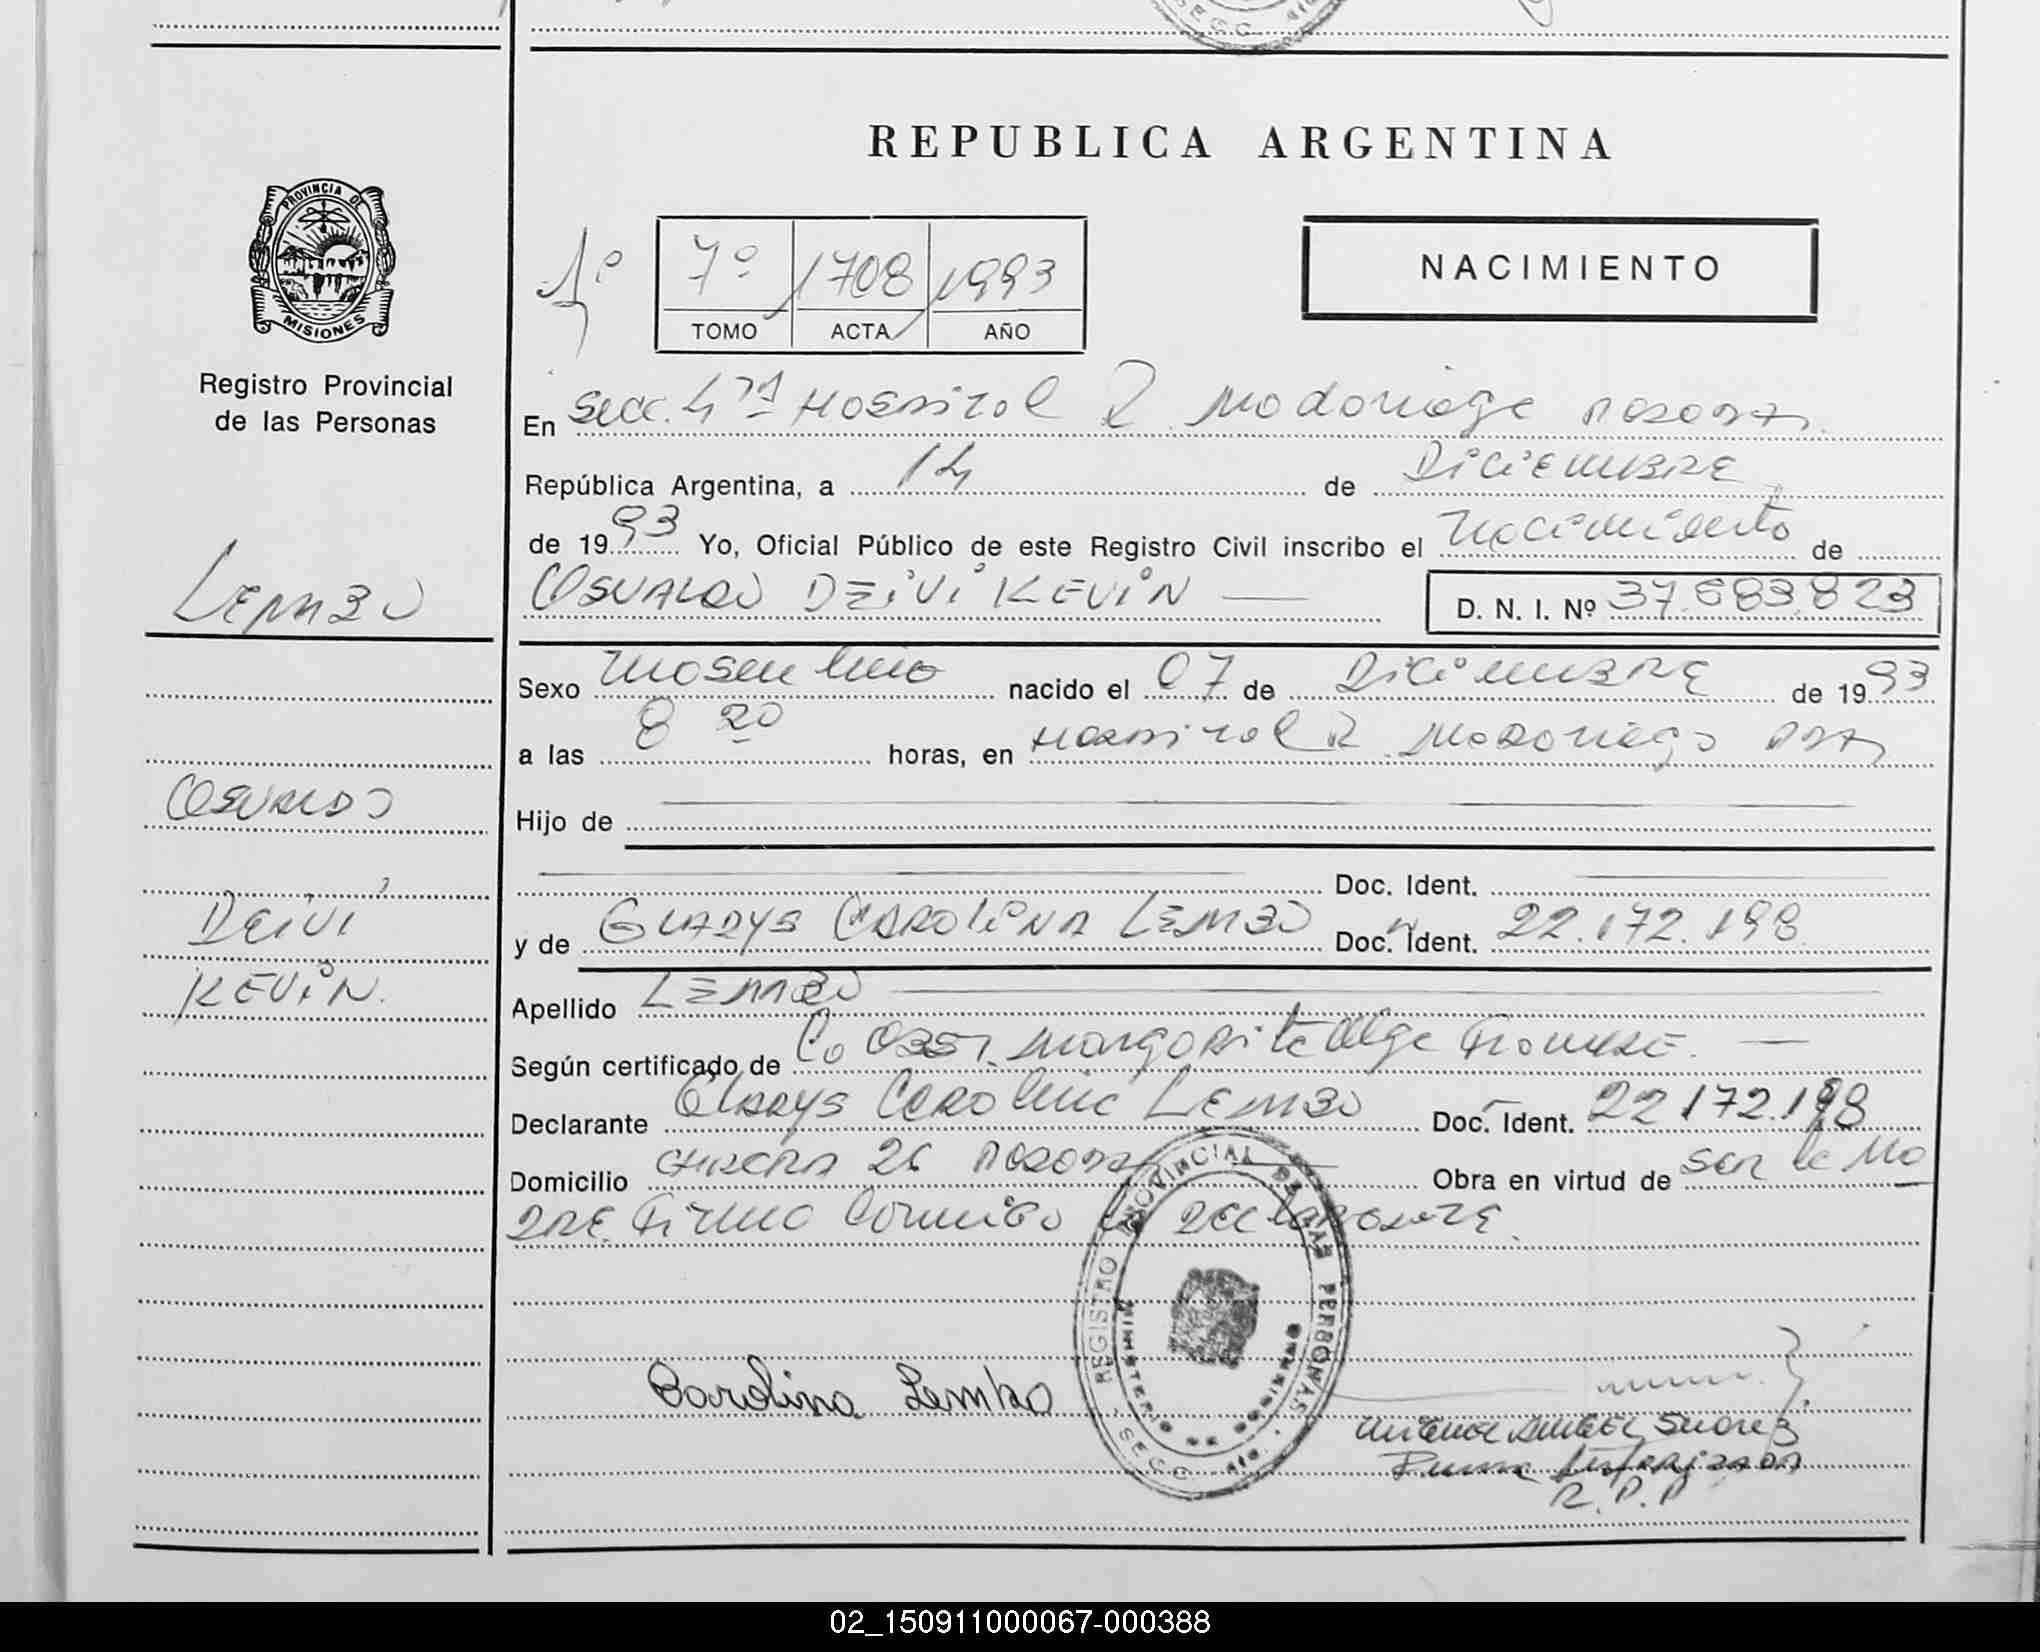 REPUBLICA ARGENTINA
PROVINCIA DE
MISIONES
Registro Provincial
de las Personas
1º
7º 1708 1993
TOMO ACTA AÑO
NACIMIENTO
En Secc. 4ta Hospital R. Madariaga Posadas.
República Argentina, a 14 de DiCiEMBRE
de 1993 Yo, Oficial Público de este Registro Civil inscribo el Nacimiento de
OSVALDO DEiVi KEViN — D. N. I. Nº 37.683.823
LEMBO
Sexo Masculino nacido el 07 de DiCiEMBRE de 1993
a las 8 20 horas, en Hospital R. Madariaga Pdas
OSVALDO
Hijo de
Doc. Ident.
DEiVi
y de GLADYS CAROLiNA LEMBO Doc. Ident. 22.172.198
KEViN.
Apellido LEMBO
Según certificado de Co Obst. Margarita Olga —
Declarante Gladys Carolina LEMBO Doc. Ident. 22.172.198
Domicilio 26 Posadas Obra en virtud de ser la Ma
DRE. Firma Conmigo la Declarante.
Carolina Lembo
REGISTRO PROVINCIAL DE LAS PERSONAS
MINISTERIO DE GOBIERNO
SECC.
Miguel Angel Suarez
Firma Autorizada
R.P.P
02_150911000067-000388